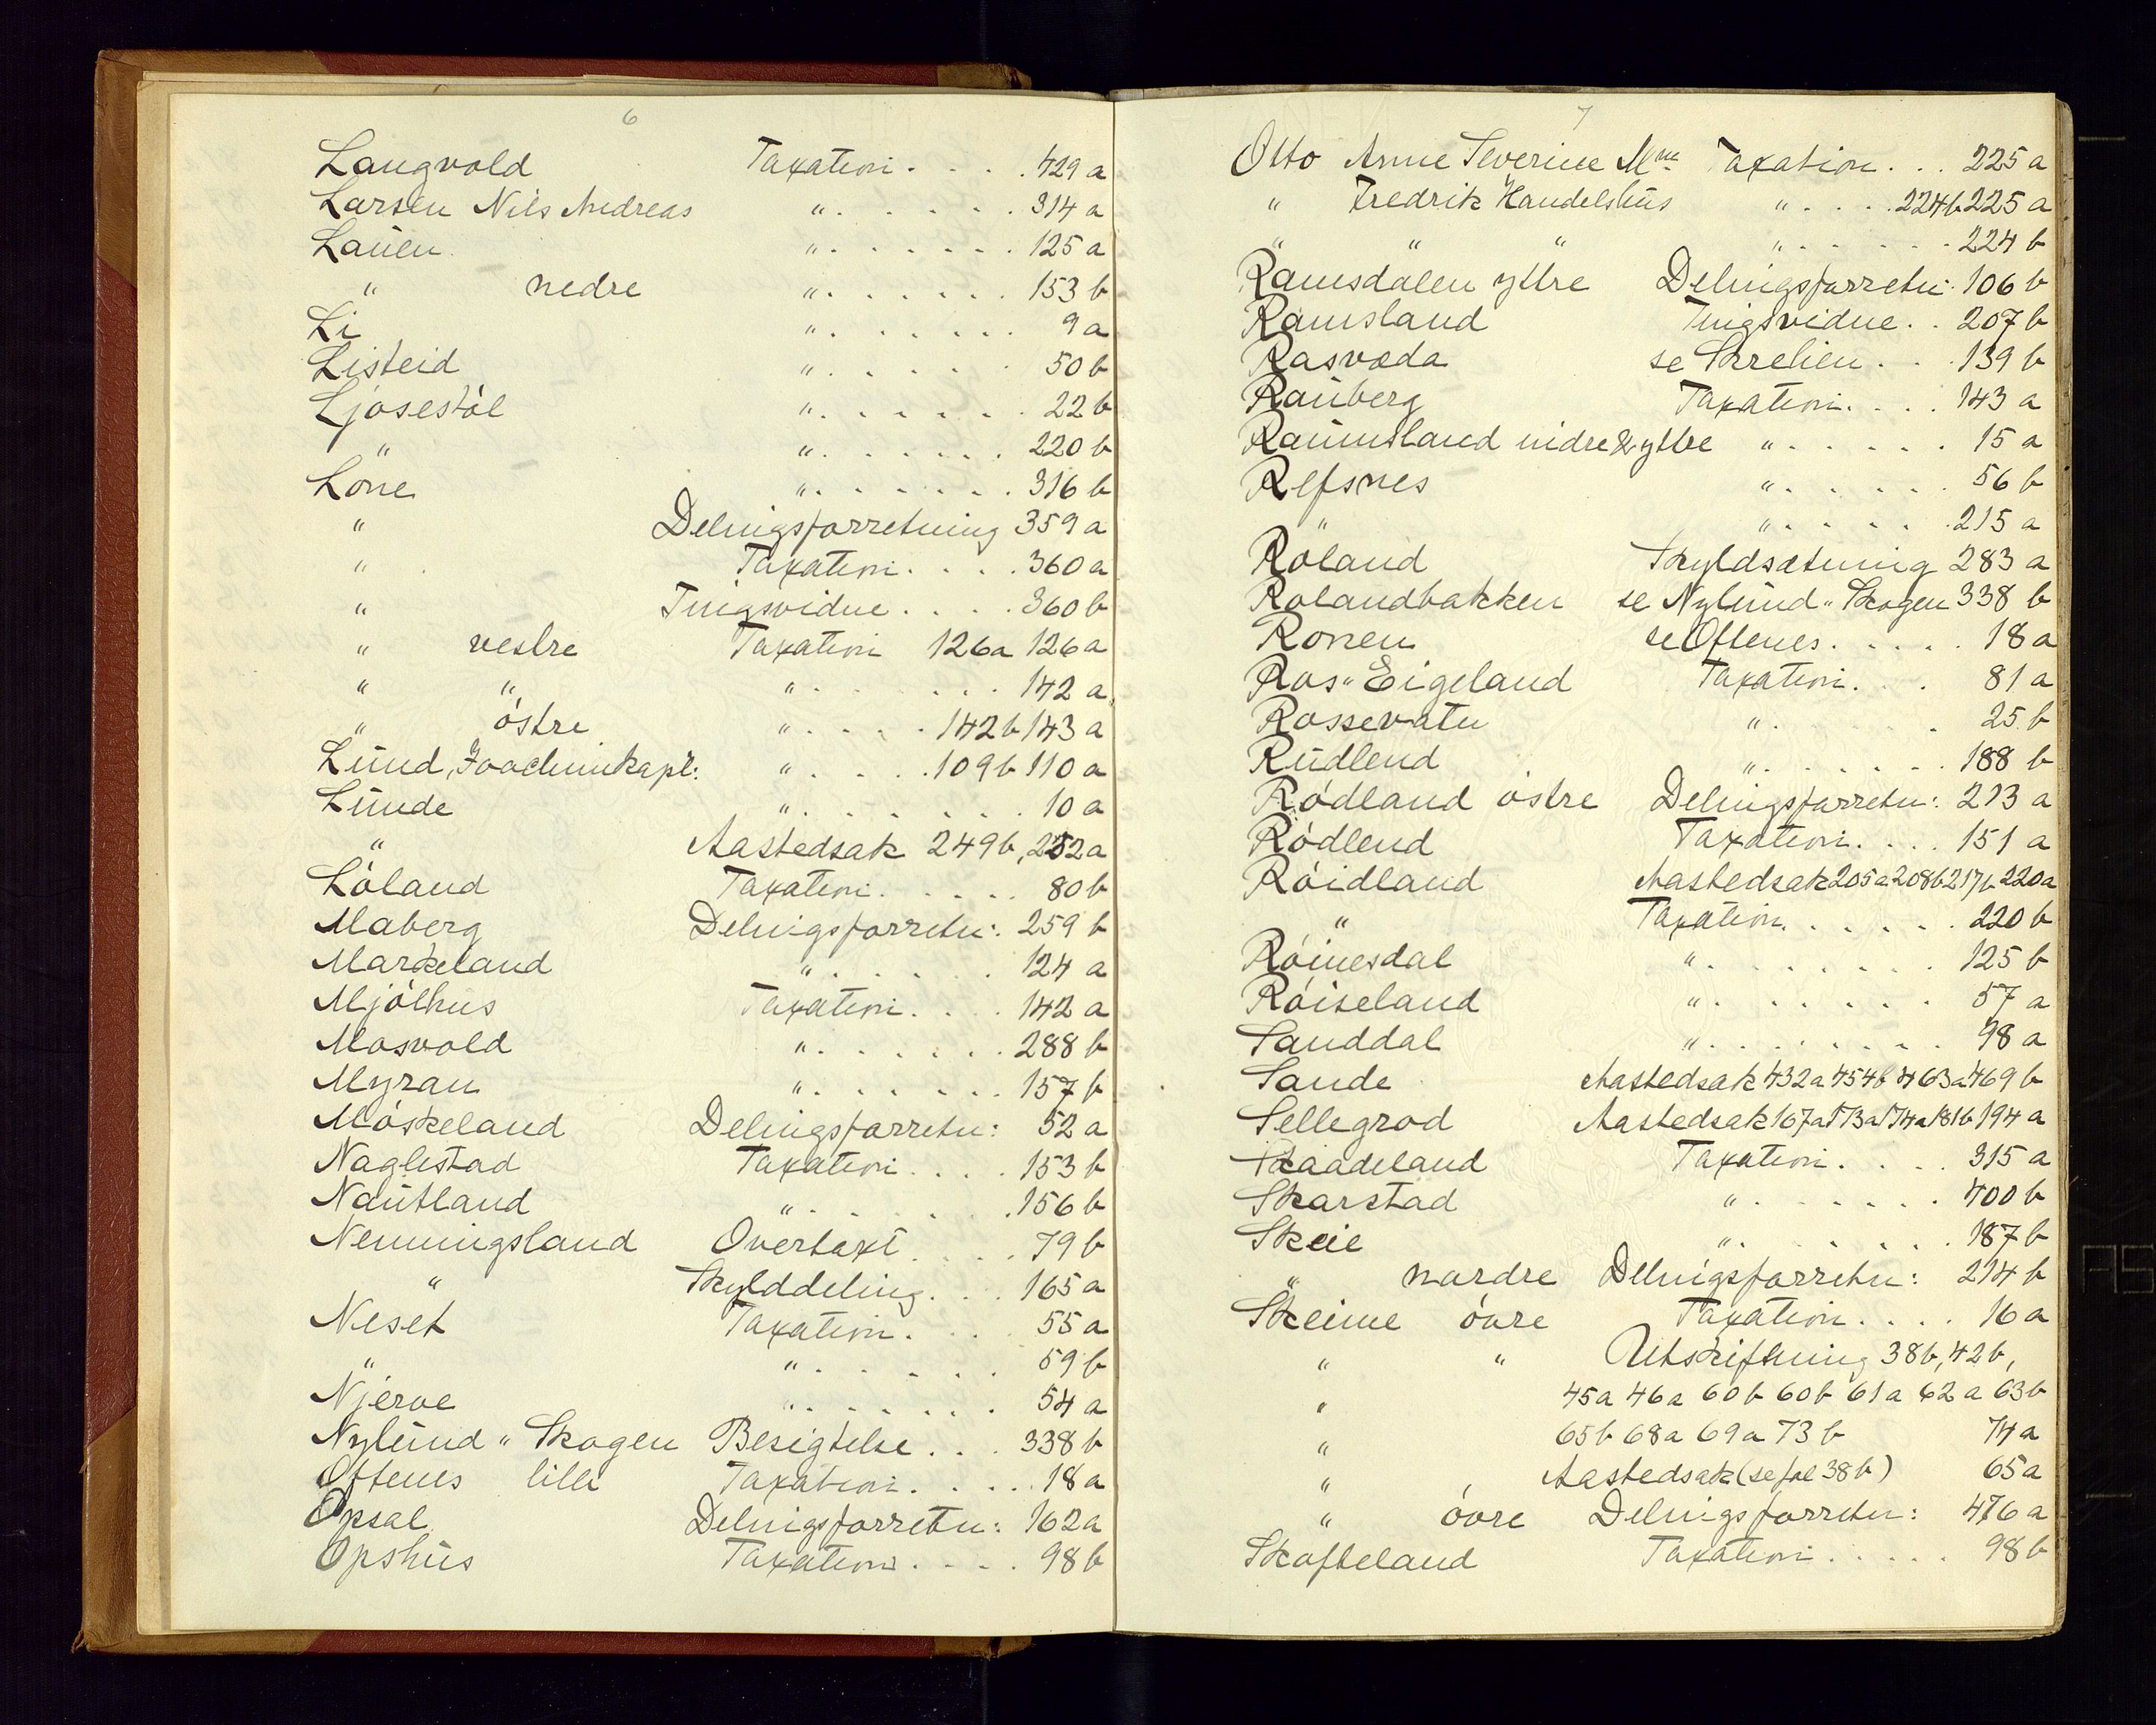 6
Langvold Taxation. . . . 429 a
Larsen Nils Andreas " . . . . . . 314 a
Lauen " . . . . . . 125 a
" nedre " . . . . . . 153 b
Li " . . . . . . 9 a
Listeid " . . . . . . 50 b
Ljosestöl " . . . . . . 22 b
" " . . . . . . 220 b
Lone " . . . . . . 316 b
" Delningsforretning 359 a
" Taxation. . . . 360 a
" Tingsvidne . . . . 360 b
" vestre Taxation 126a 126 a
" " " . . . . . . 142 a
" östre " . . . . 142 b 143 a
Lund, Joachim kapt: " . . . . 109 b 110 a
Lunde " . . . . . . 10 a
" Aastedsak 249 b, 252 a
Löland Taxation. . . . . 80 b
Maberg Delningsforretn: 259 b
Markeland " . . . . . . 124 a
Mjölhus Taxation. . . . 142 a
Mosvold " . . . . . . 288 b
Myran " . . . . . . 157 b
Möskeland Delningsforretn: 52 a
Naglestad Taxation. . . . 153 b
Nautland " . . . . . . 156 b
Nenningsland Overtaxt . . . . 79 b
" Skylddeling . . . 165 a
Neset Taxation. . . . 55 a
" " . . . . . . 59 b
Njerve " . . . . . . 54 a
Nylund " Skogen Besigtelse . . . 338 b
Oftenes lille Taxation. . . . . 18 a
Opsal Delningsforretn: 162 a
Opshus Taxation. . . . 98 b
7
Otto Anne Severine Mm Taxation . . . 225 a
" Fredrik Handelshus " . . . . 224 b 225 a
" " " " . . . . . . 224 b
Ramsdalen yttre Delningsforretn: 106 b
Ramsland Tingsvidne . . 207 b
Rasvoda se Skrelien . . . 139 b
Rauberg Taxation. . . . 143 a
Raumsland nidre & yttre " . . . . . . 15 a
Refsnes " . . . . . . 56 b
" " . . . . . . 215 a
Roland Skyldsætning 283 a
Rolandbakken se Nylund " Skogen 338 b
Ronen se Oftenes . . . . . 18 a
Ros " Eigeland Taxation. . . 81 a
Rossevatn " . . . . . . 25 b
Rudlend " . . . . . . 188 b
Rödland östre Delningsforretn: 213 a
Rödlend Taxation. . . . 151 a
Röidland Aastedsak 205 a 208 b 217 b 220 a
" Taxation. . . . . . 220 b
Röinesdal " . . . . . . 125 b
Röiseland " . . . . . . 57 a
Sanddal " . . . . . . 98 a
Sande Aastedsak 432 a 454 b 463 a 469 b
Sellegrod Aastedsak 167 a 173 a 174 a 181 b 194 a
Skaadeland Taxation. . . . 315 a
Skarstad " . . . . . . 400 b
Skeie " . . . . . . 187 b
" nordre Delningsforretn: 214 b
Skeime övre Taxation. . . . 16 a
" " Utskiftning 38 b, 42 b,
" 45a 46a 60b 60b 61a 62a 63b
" 65b 68a 69a 73b 74 a
" Aastedsak (se fol 38 b) 65 a
" övre Delningsforretn: 476 a
Skofteland Taxation. . . . . 98 b